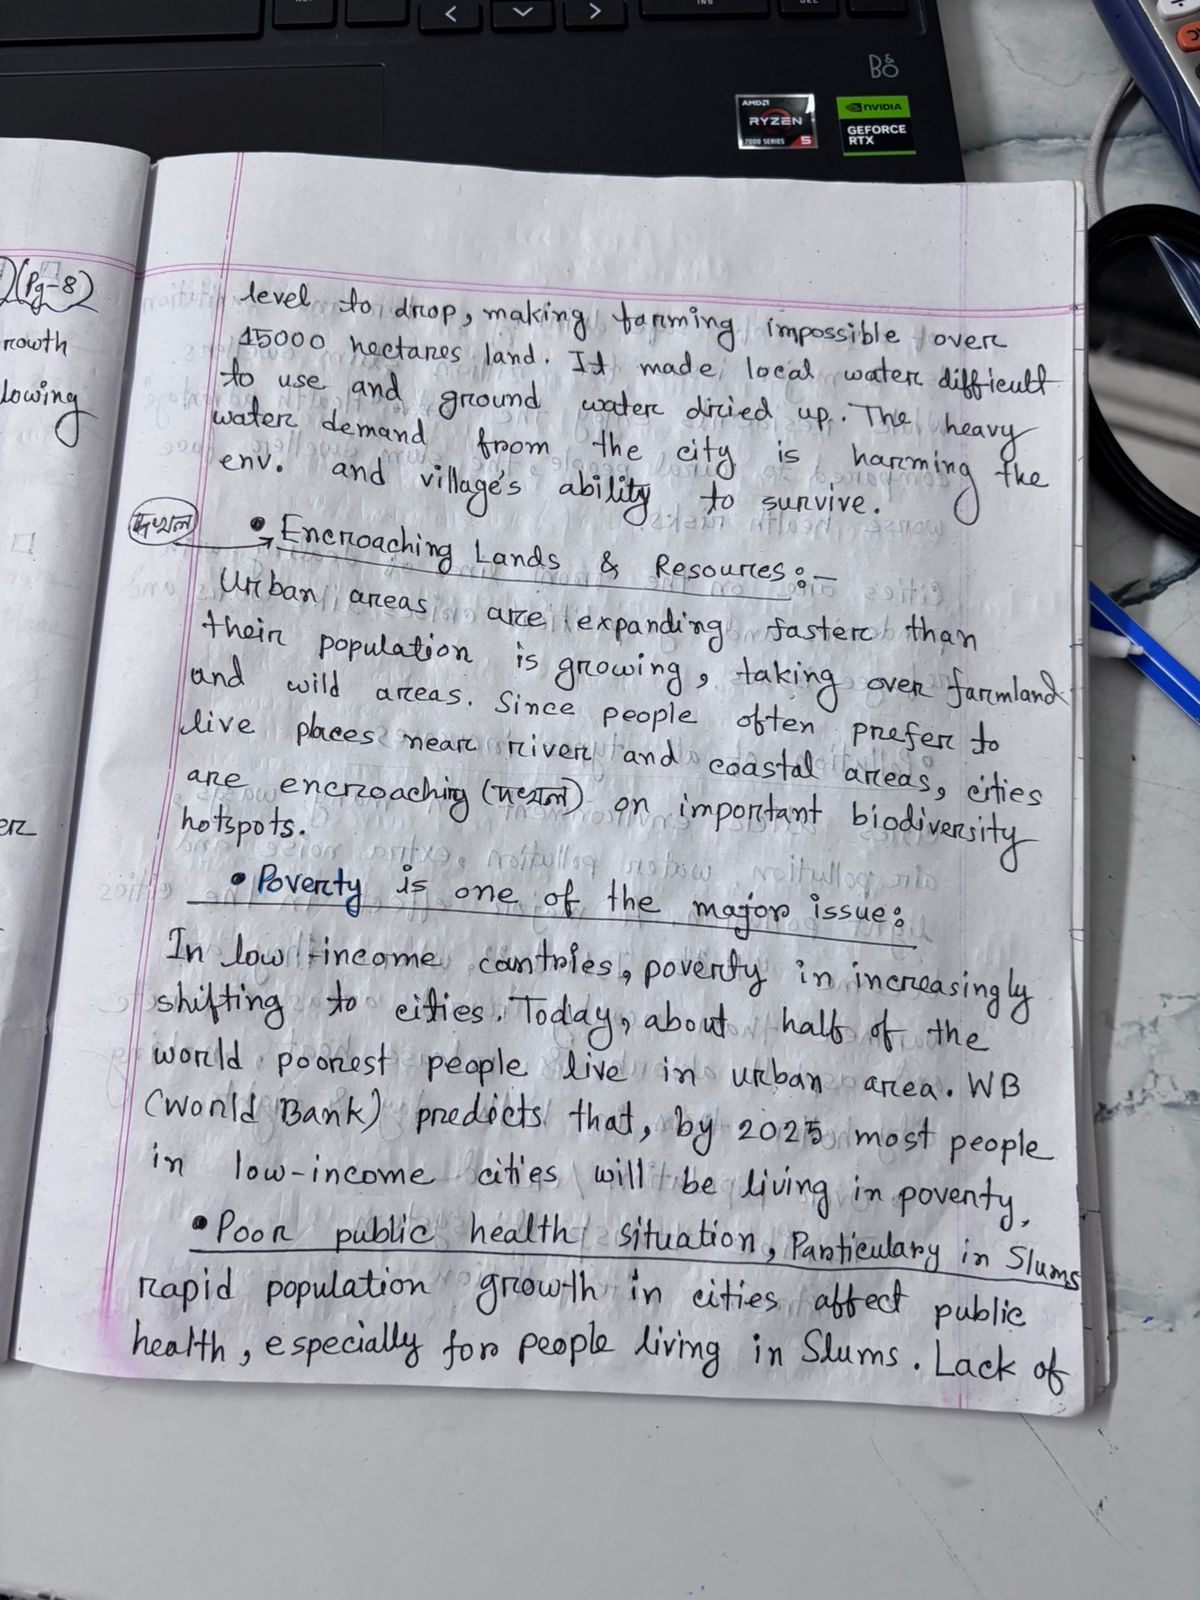 INS
DEL
B&O
AMD
RYZEN
7000 SERIES 5
NVIDIA
GEFORCE
RTX
(Pg-8)
rowth
lowing
er
level to drop, making farming impossible over
15000 hectares land. It made local water difficult
to use and ground water dried up. The heavy
water demand from the city is harming the
env. and village's ability to survive.
দখল
• Encroaching Lands & Resources:-
Urban areas are expanding faster than
their population is growing, taking over farmland
and wild areas. Since people often prefer to
live places near river and coastal areas, cities
are encroaching (দখল) on important biodiversity
hotspots.
• Poverty is one of the major issue:
In low-income cantries, poverty in increasingly
shifting to cities. Today, about half of the
world poorest people live in urban area. WB
(World Bank) predicts that, by 2025 most people
in low-income cities will be living in poverty.
• Poor public health situation, Particulary in Slums
rapid population growth in cities affect public
health, especially for people living in Slums. Lack of